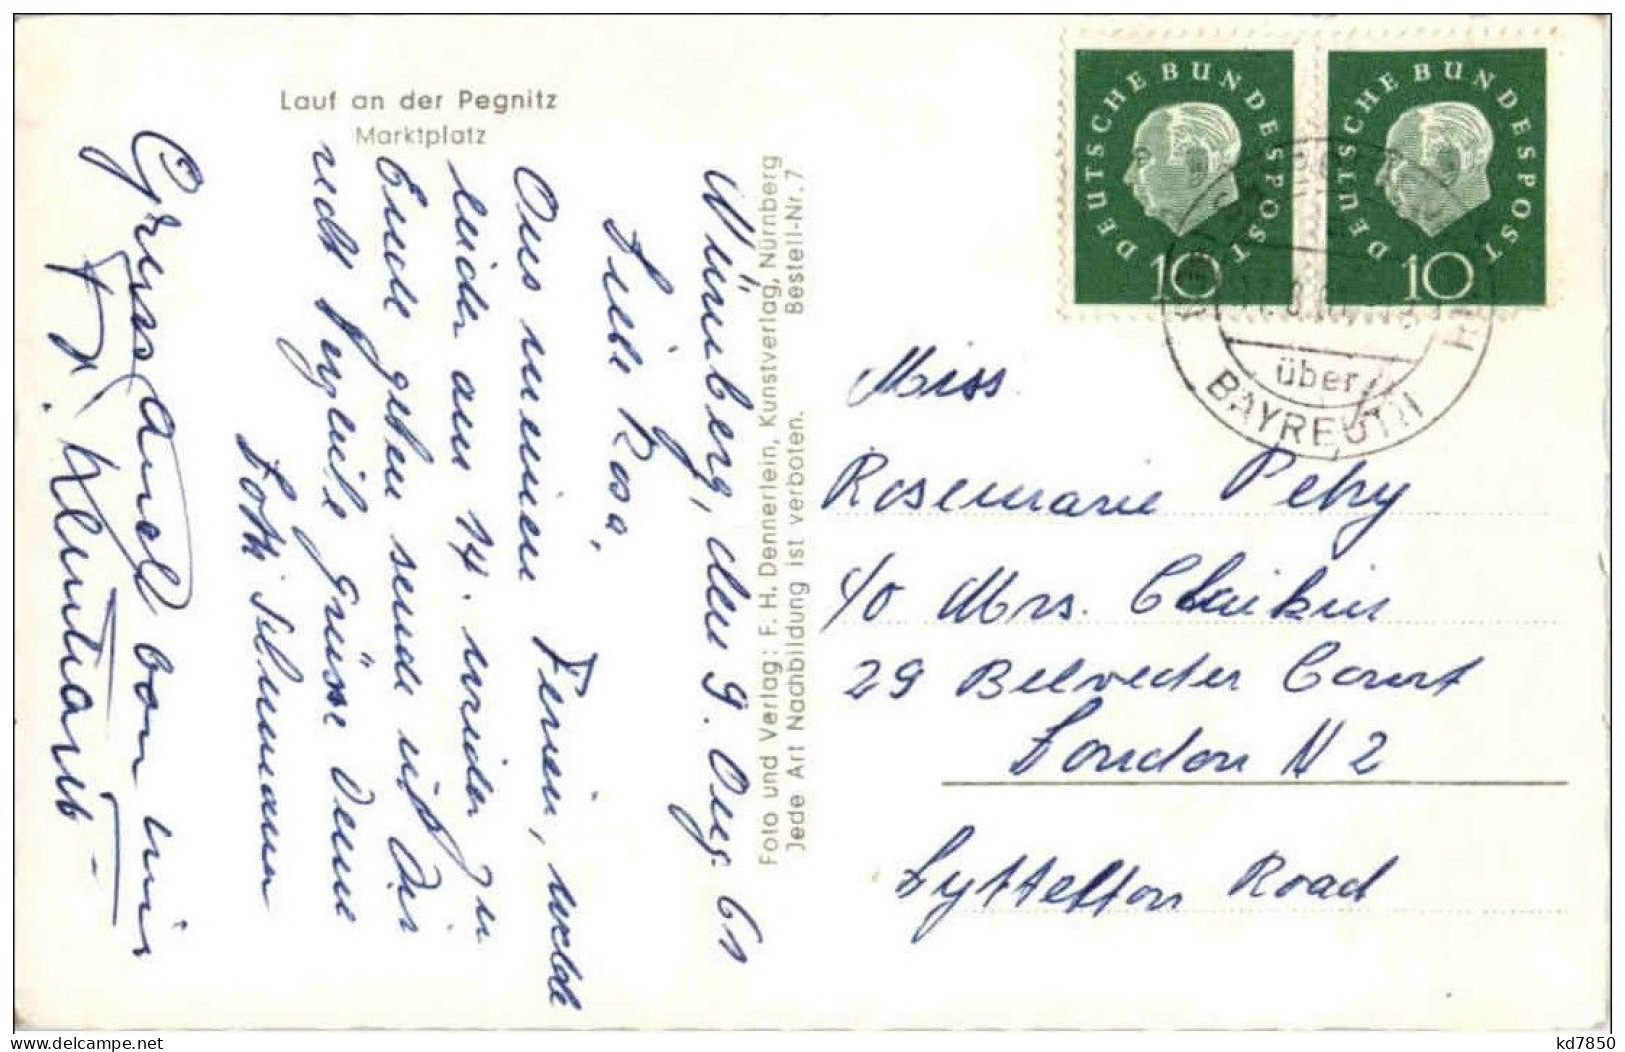 Lauf an der Pegnitz
Marktplatz
Nürnberg, den 9. Aug. 61
Liebe Rosa,
Aus meinen Ferien, welche
leider am 14. wieder zu
Ende gehen sende ich Dir
recht herzliche Grüsse Deine
Lotte
Gruss auch von mir
Foto und Verlag: F. H. Dennerlein, Kunstverlag, Nürnberg
Jede Art Nachbildung ist verboten. Bestell-Nr. 7
DEUTSCHE BUNDESPOST
10
DEUTSCHE BUNDESPOST
10
über
BAYREUTH
Miss
Rosemarie Petry
c/o Mrs.
29 Belveder Court
London N 2
Lyttelton Road
www.delcampe.net
kd7850